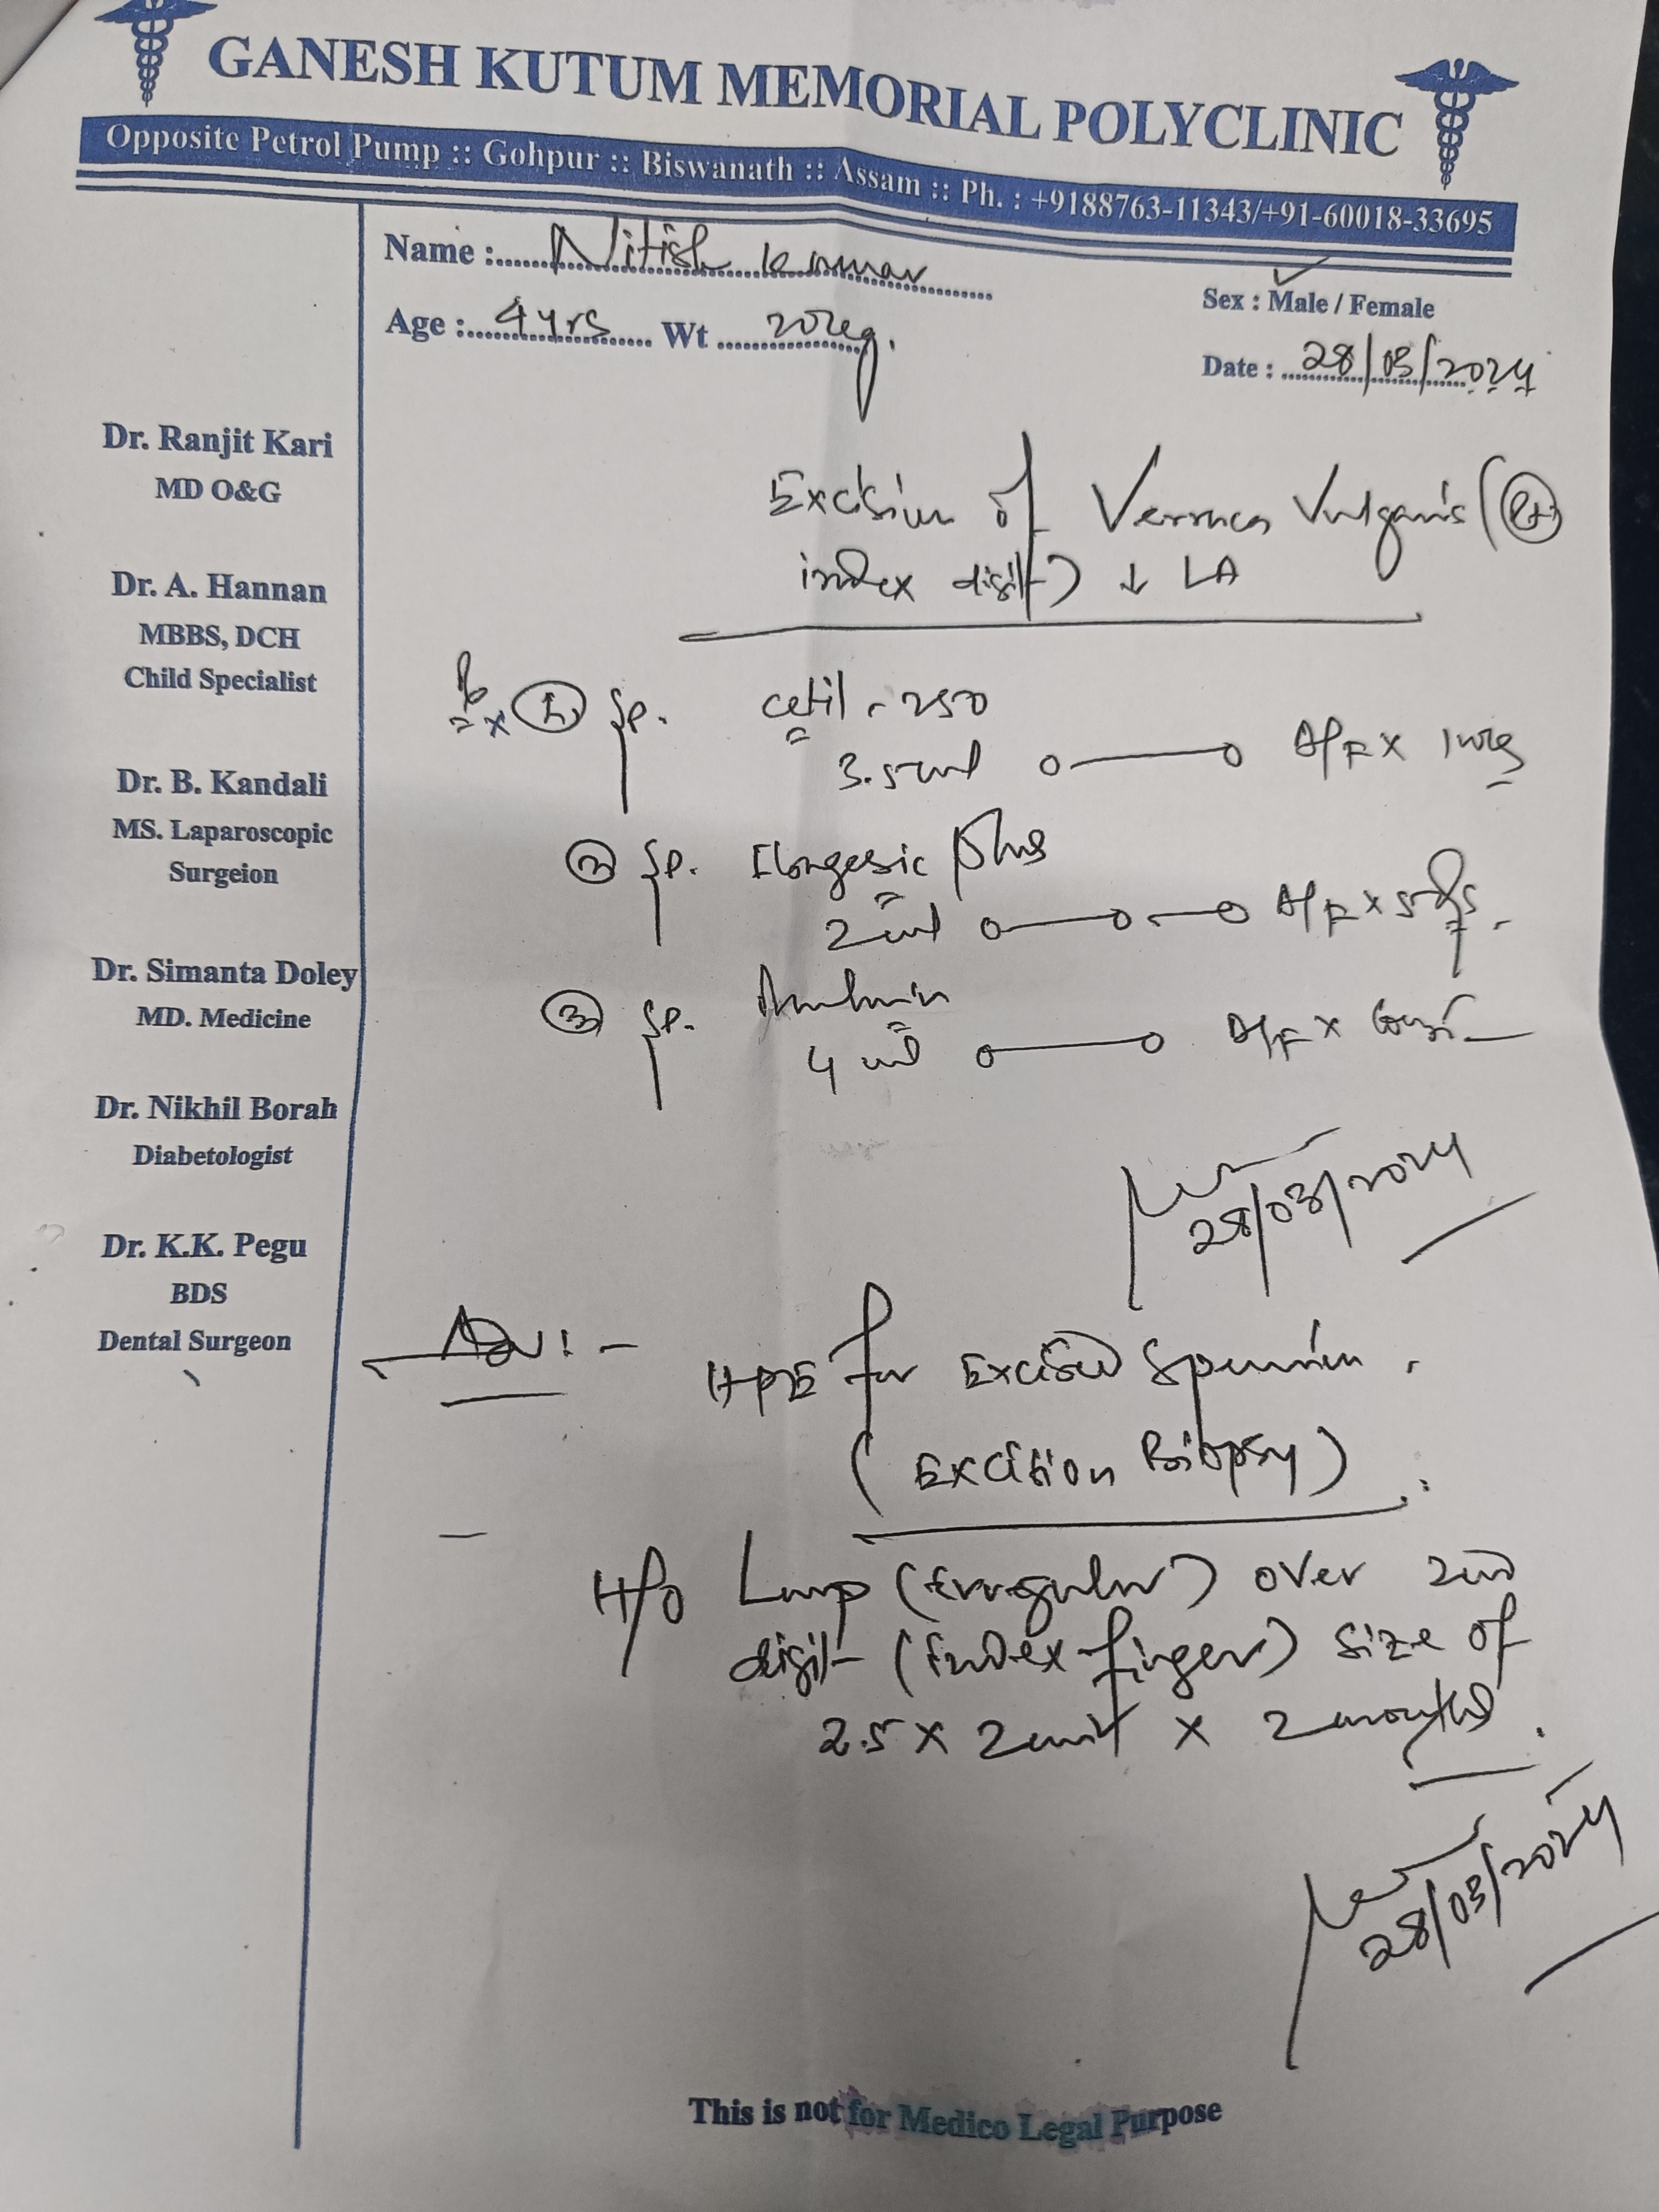 GANESH KUTUM MEMORIAL POLYCLINIC
Opposite Petrol Pump :: Gohpur :: Biswanath :: Assam :: Ph. : +9188763-11343/+91-60018-33695
Name : Nitish Kumar
Sex : Male / Female
Age : 4 yrs Wt 20kg.
Date : 28/03/2024
Dr. Ranjit Kari
MD O&G
Dr. A. Hannan
MBBS, DCH
Child Specialist
Dr. B. Kandali
MS. Laparoscopic
Surgeion
Dr. Simanta Doley
MD. Medicine
Dr. Nikhil Borah
Diabetologist
Dr. K.K. Pegu
BDS
Dental Surgeon
Excision of Verruca Vulgaris (Rt)
index digit) ↓ LA
Rx 1) Sp. Cetil - 250
3.5ml o—o A/F x 1 wk
2) Sp. Ibugesic plus
2 ml o—o—o A/F x 5 dys.
3) Sp.
4 ml o—o A/F x
28/03/2024
Adv: - HPE for Excised Specimen.
(Excision Biopsy)
H/o Lump (Irregular) over 2nd
digit (Index finger) size of
2.5 x 2 x 2 months.
28/03/2024
This is not for Medico Legal Purpose